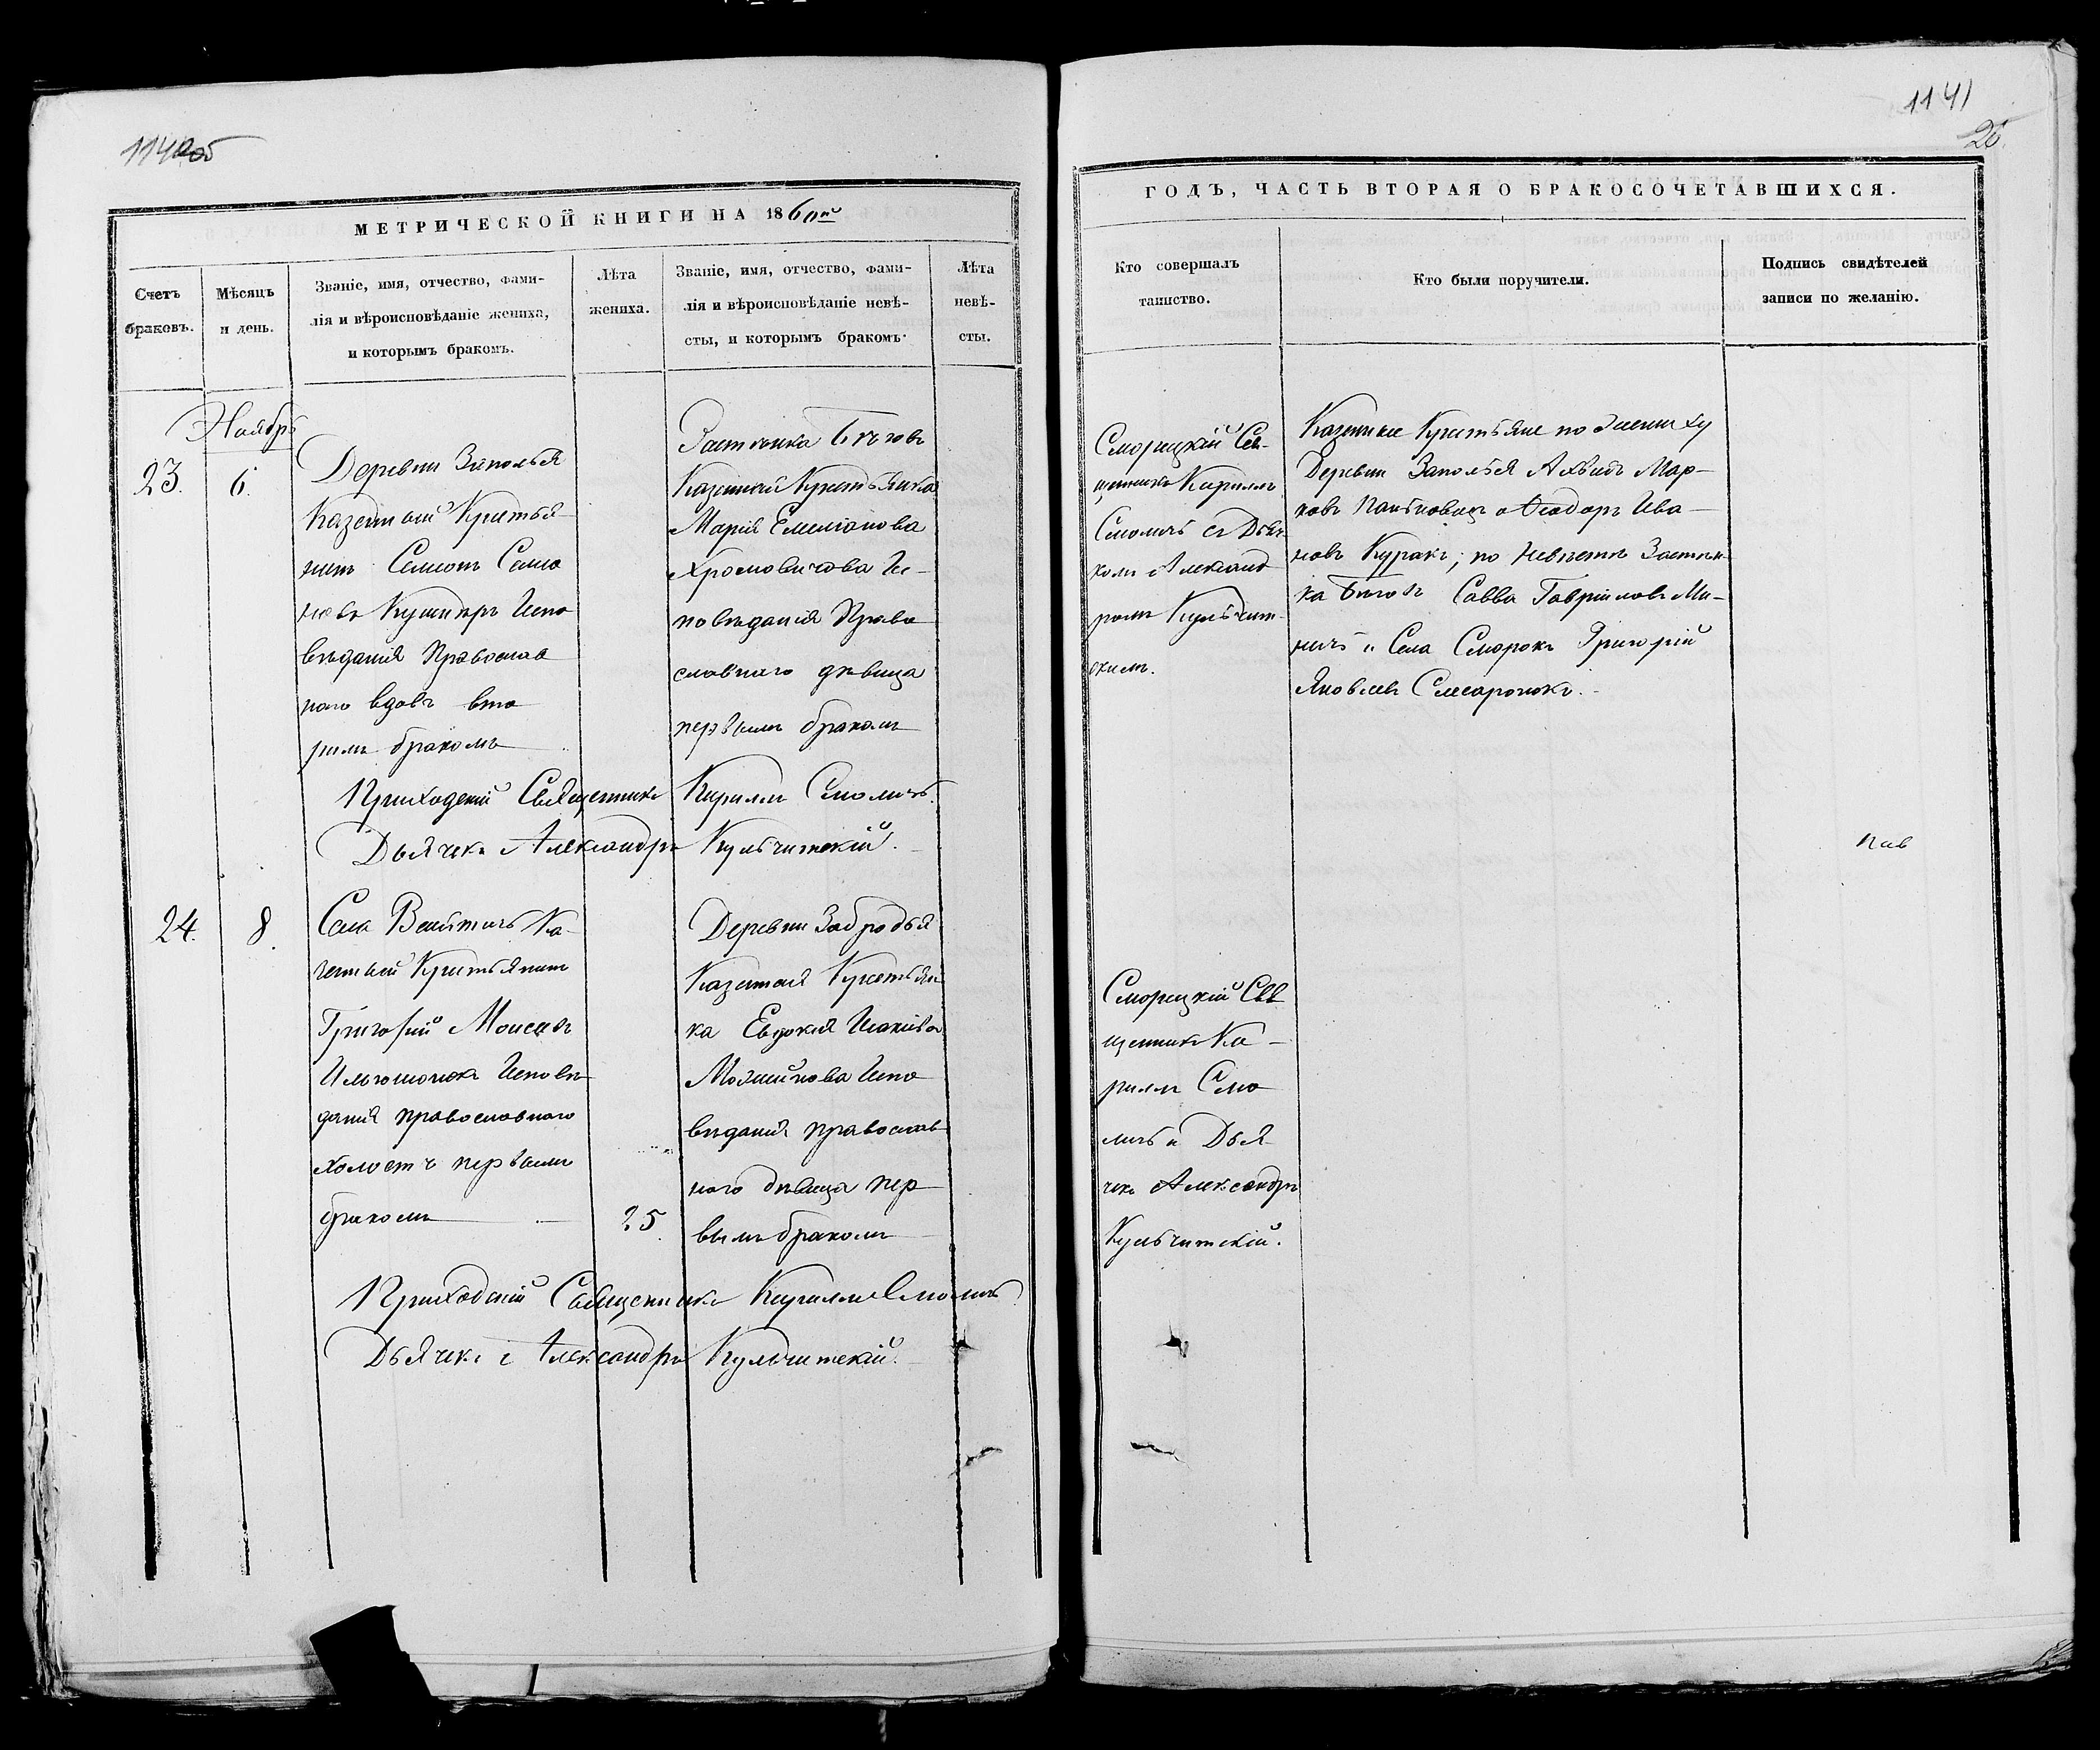 1140об
МЕТРИЧЕСКОЙ КНИГИ НА 1860й
Счетъ
браковъ.
Мѣсяцъ
и день.
Званіе, имя, отчество, фами-
лія и вѣроисповѣданіе жениха,
и которымъ бракомъ.
Лѣта
жениха.
Званіе, имя, отчество, фами-
лія и вѣроисповѣданіе невѣ-
сты, и которымъ бракомъ
Лѣта
невѣ-
сты.
Ноябрь
23.
6.
Деревни Заполья
Казенный Крестья
нинъ Семіонъ Семіо
новъ Кушнѣръ Испо
вѣданія Православ
ного вдовъ вто
рымъ бракомъ
Застѣнка
Казенная Крестьянка
Марія Емеліанова
Хромовичова Ис-
повѣданія Право
славного дѣвица
первымъ бракомъ
Приходскій Священникъ Кириллъ Смоличъ.
Дьячекъ Александръ Кульчитскій.
24.
8.
Села Ка-
зенный Крестьянинъ
Григорій Моисеевъ
Исповѣ
данія православного
холостъ первымъ
бракомъ
25.
Деревни Забродья
Казенная Крестьян
ка Евдокія
Испо
вѣданія православ
ного дѣвица пер
вымъ бракомъ
Приходскій Священникъ Кириллъ Смоличъ
Дьячекъ Александръ Кульчитскій.
1141
26.
ГОДЪ, ЧАСТЬ ВТОРАЯ О БРАКОСОЧЕТАВШИХСЯ.
Кто совершалъ
таинство.
Кто были поручители.
Подпись свидѣтелей
записи по желанію.
Сморицкій Свя-
щенникъ Кириллъ
Смоличъ съ Дьяч-
комъ Александ
ромъ Кульчит-
скимъ.
Казенные Крестьяне по жениху
Деревни Заполья Мар-
ковъ и Ѳеодоръ Ива-
новъ Куракъ; по невѣстѣ Застѣн-
ка Савва Гавріиловъ Ми-
ничъ и Села Сморокъ Григорій
Яковлевъ Слесаронокъ.
Пав
Сморицкій Свя
щенникъ Ки-
риллъ Смо
личъ и Дья
чекъ Александръ
Кульчитскій.